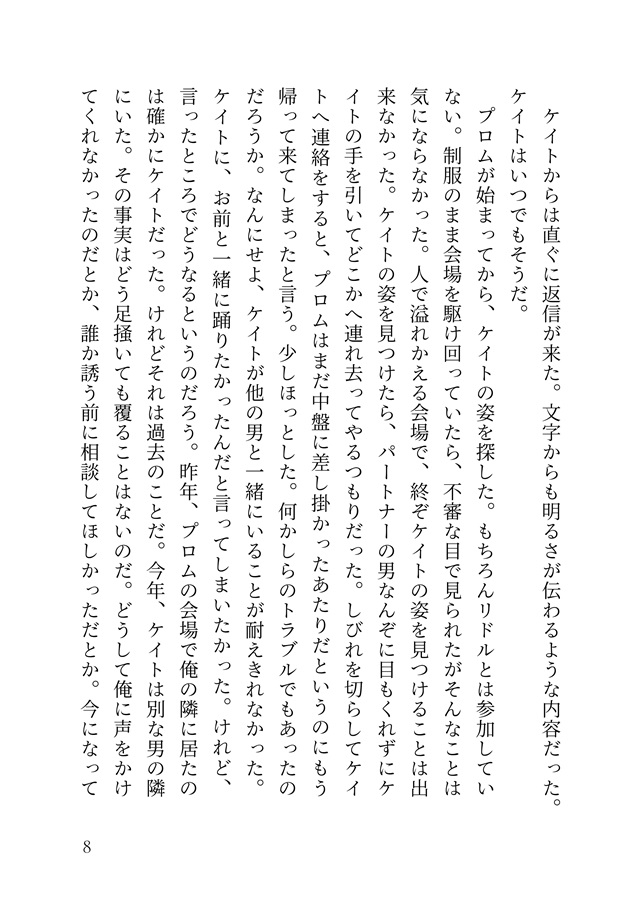 ケイトからは直ぐに返信が来た。文字からも明るさが伝わるような内容だった。
ケイトはいつでもそうだ。
　プロムが始まってから、ケイトの姿を探した。もちろんリドルとは参加してい
ない。制服のまま会場を駆け回っていたら、不審な目で見られたがそんなことは
気にならなかった。人で溢れかえる会場で、終ぞケイトの姿を見つけることは出
来なかった。ケイトの姿を見つけたら、パートナーの男なんぞに目もくれずにケ
イトの手を引いてどこかへ連れ去ってやるつもりだった。しびれを切らしてケイ
トへ連絡をすると、プロムはまだ中盤に差し掛かったあたりだというのにもう
帰って来てしまったと言う。少しほっとした。何かしらのトラブルでもあったの
だろうか。なんにせよ、ケイトが他の男と一緒にいることが耐えきれなかった。
ケイトに、お前と一緒に踊りたかったんだと言ってしまいたかった。けれど、
言ったところでどうなるというのだろう。昨年、プロムの会場で俺の隣に居たの
は確かにケイトだった。けれどそれは過去のことだ。今年、ケイトは別な男の隣
にいた。その事実はどう足掻いても覆ることはないのだ。どうして俺に声をかけ
てくれなかったのだとか、誰か誘う前に相談してほしかっただとか。今になって
8